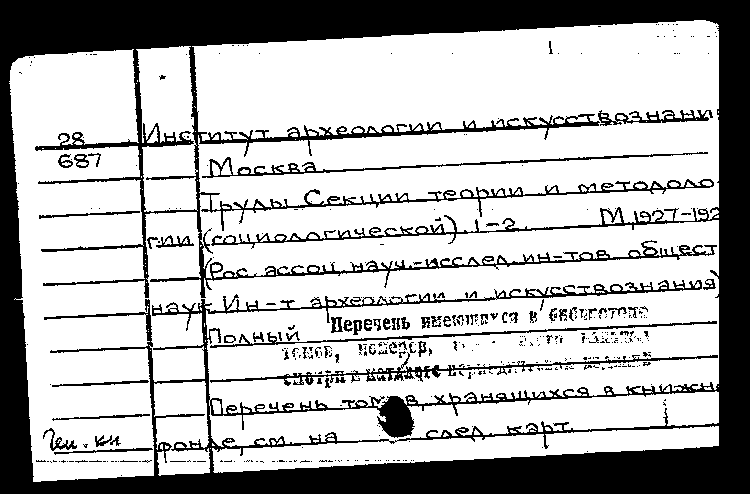 28 Институт археологии и искусствознани
687 Москва.
Труды Секции теории и методоло-
гии (социологической). 1-2. М, 1927-192
(Рос. ассоц. науч.-исслед. ин-тов обществ
наук Ин-т археологии и искусствознания)
Полный Перечень имеющихся в библиотеке
томов, номеров,
смотри в каталоге периодических изданий
Перечень томов, хранящихся в книжн
Ген. кн фонде, см. на след. карт.